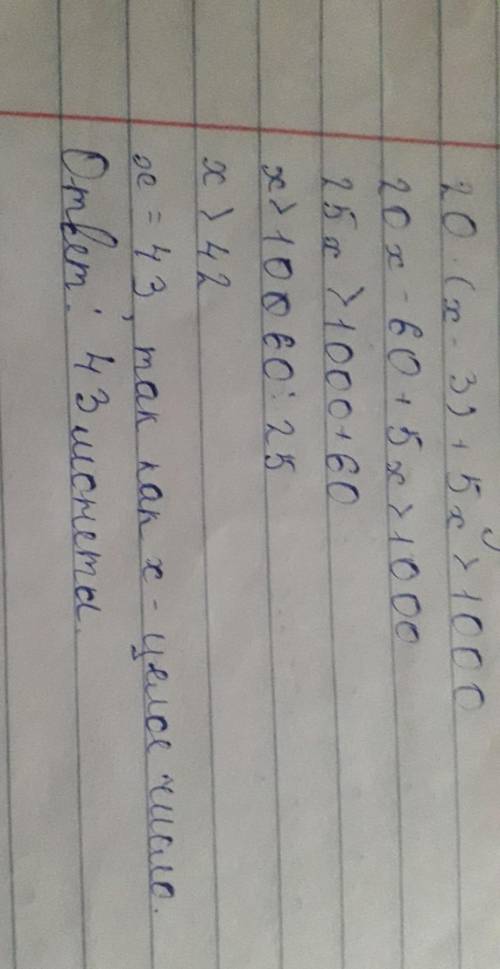 20 · (x - 3) + 5x > 1000
20x - 60 + 5x > 1000
25x > 1000 + 60
x > 10060 : 25
x > 42
x = 43, так как x - целое число.
Ответ: 43 монеты.